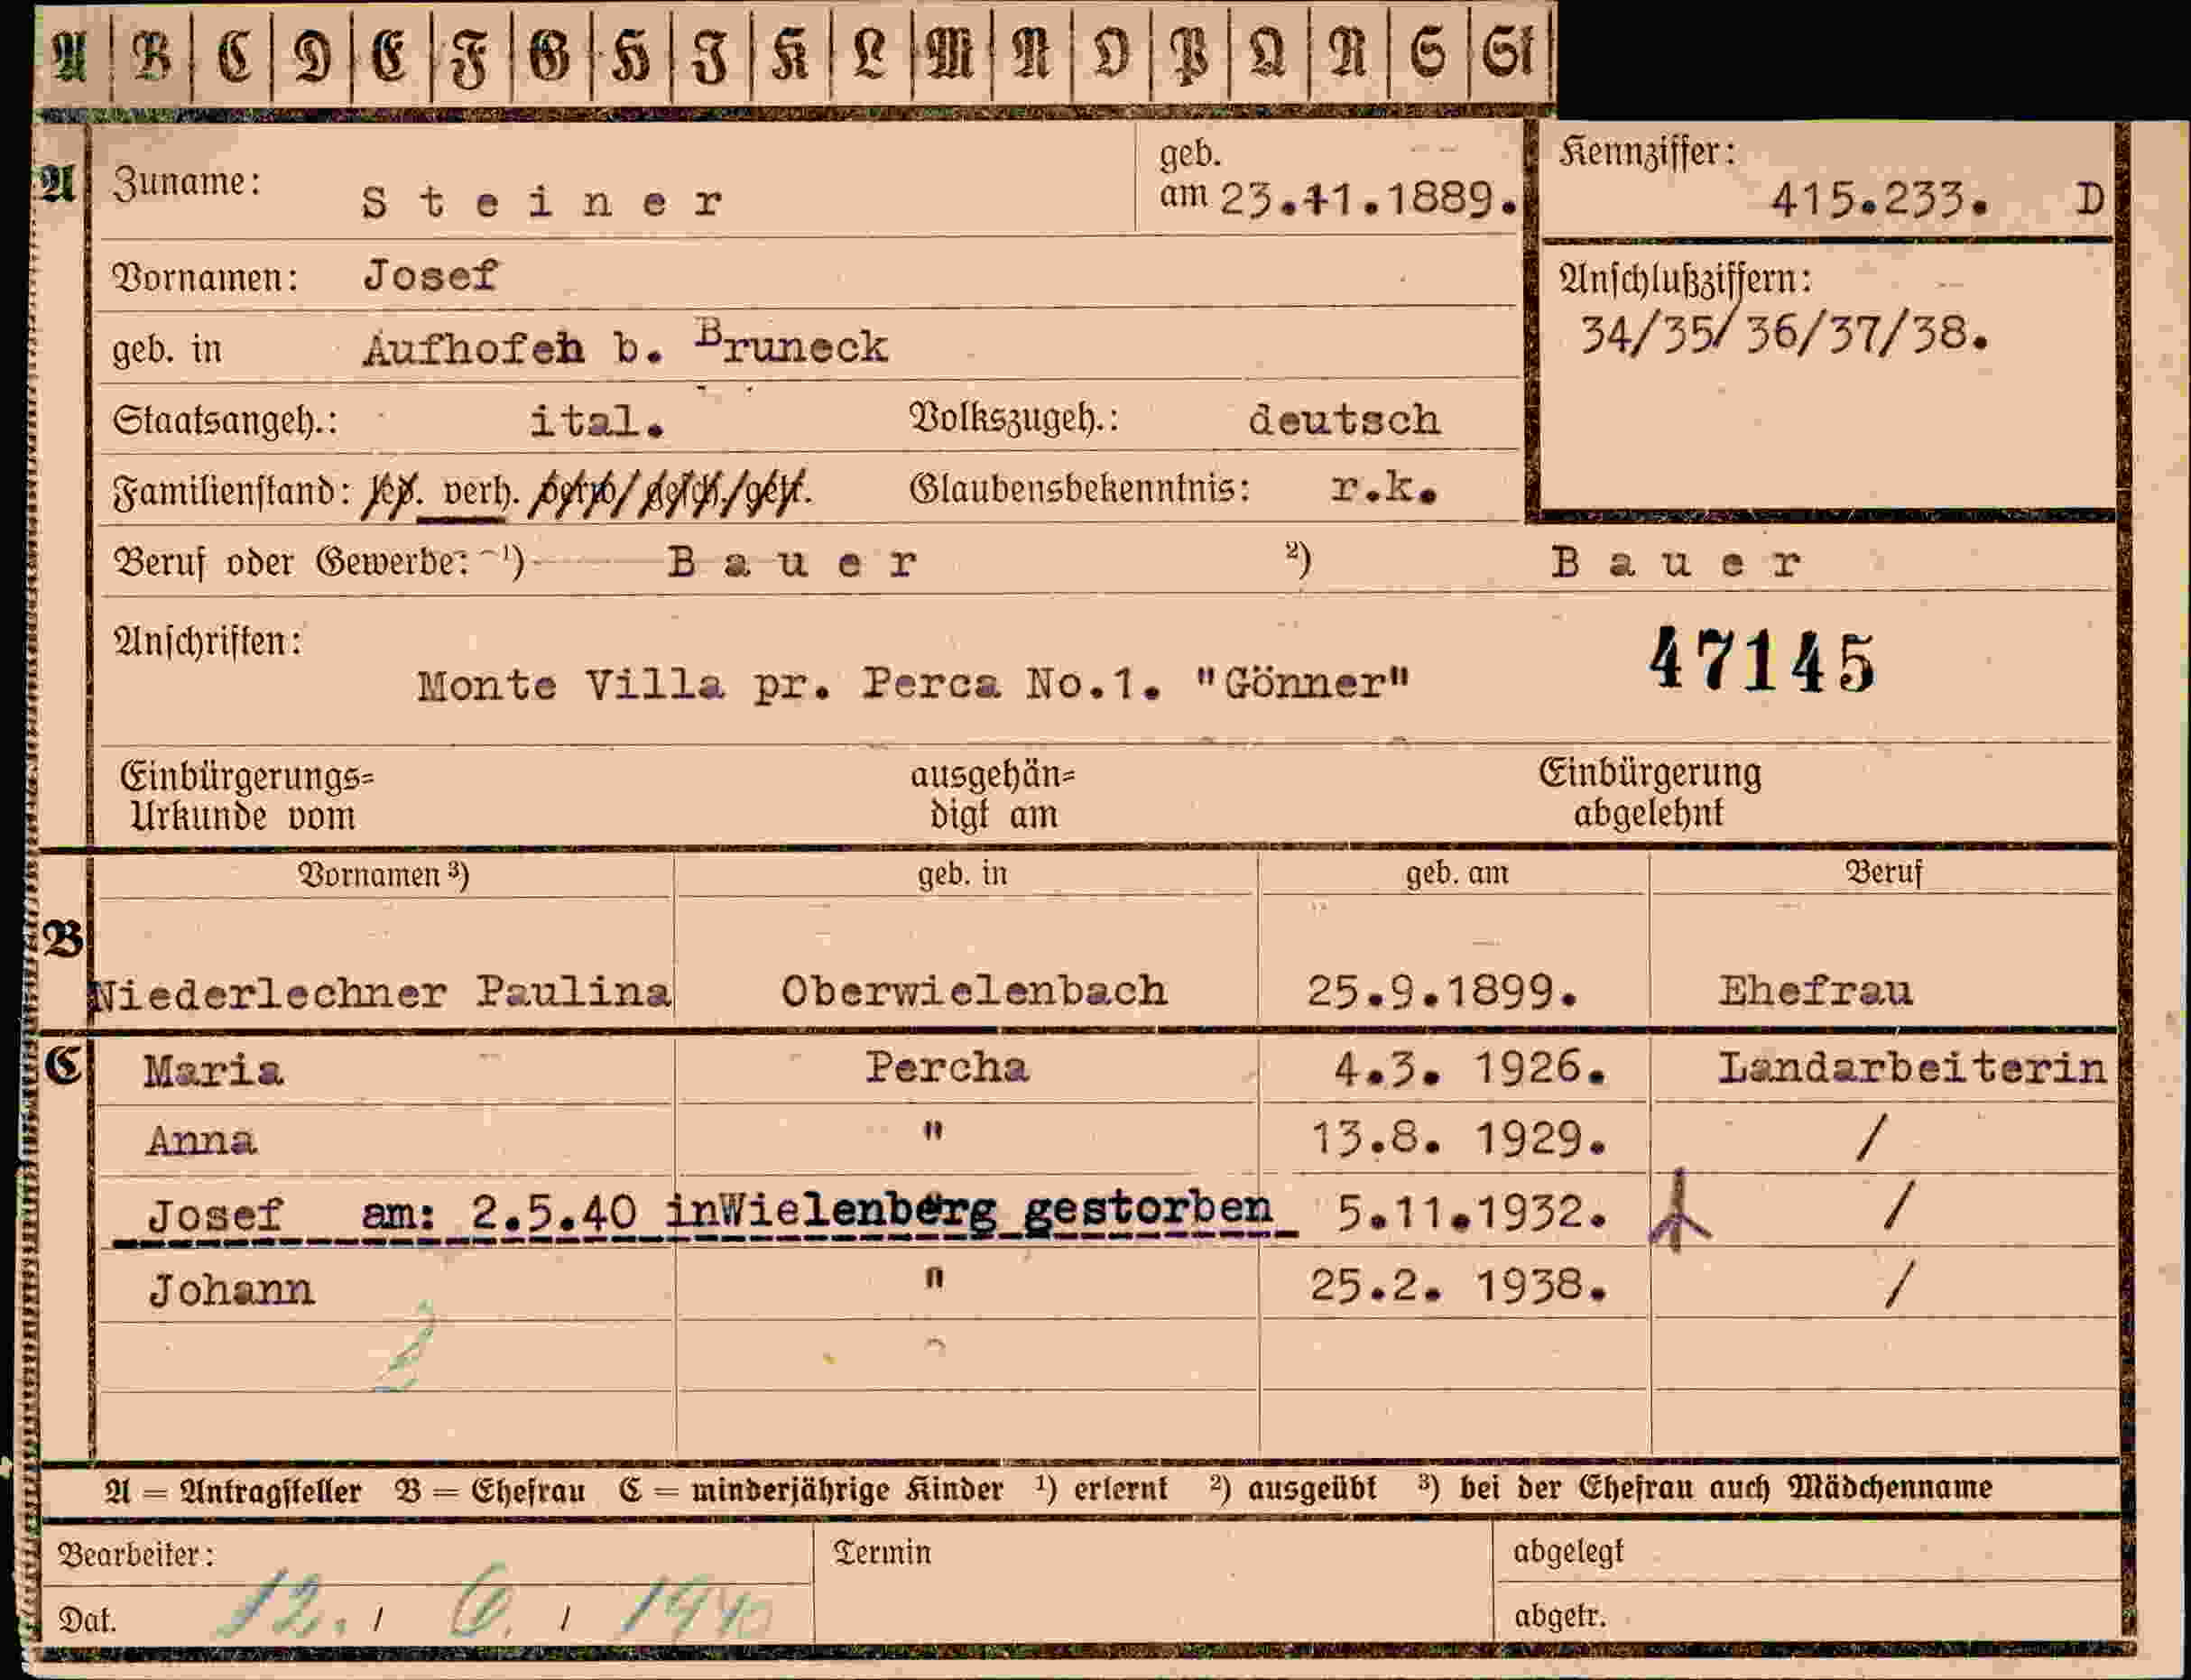 A B C D E F G H J K L M N O P Q R S St
A Zuname: Steiner geb. am 23.11.1889. Kennziffer: 415.233. D
Vornamen: Josef Anschlußziffern:
34/35/36/37/38.
geb. in Aufhofen b. Bruneck
Staatsangeh.: ital. Volkszugeh.: deutsch
Familienstand: led. verh. verw/gesch./getr. Glaubensbekenntnis: r.k.
Beruf oder Gewerbe: 1) Bauer 2) Bauer
Anschriften: 47145
Monte Villa pr. Perca No.1. "Gönner"
Einbürgerungs= ausgehän= Einbürgerung
Urkunde vom digt am abgelehnt
Vornamen 3) geb. in geb. am Beruf
B
Niederlechner Paulina Oberwielenbach 25.9.1899. Ehefrau
C Maria Percha 4.3. 1926. Landarbeiterin
Anna " 13.8. 1929. /
Josef am: 2.5.40 inWielenberg gestorben 5.11.1932. /
Johann " 25.2. 1938. /
A = Antragsteller B = Ehefrau C = minderjährige Kinder 1) erlernt 2) ausgeübt 3) bei der Ehefrau auch Mädchenname
Bearbeiter: Termin abgelegt
Dat. 12. / 6. / 1940 abgetr.